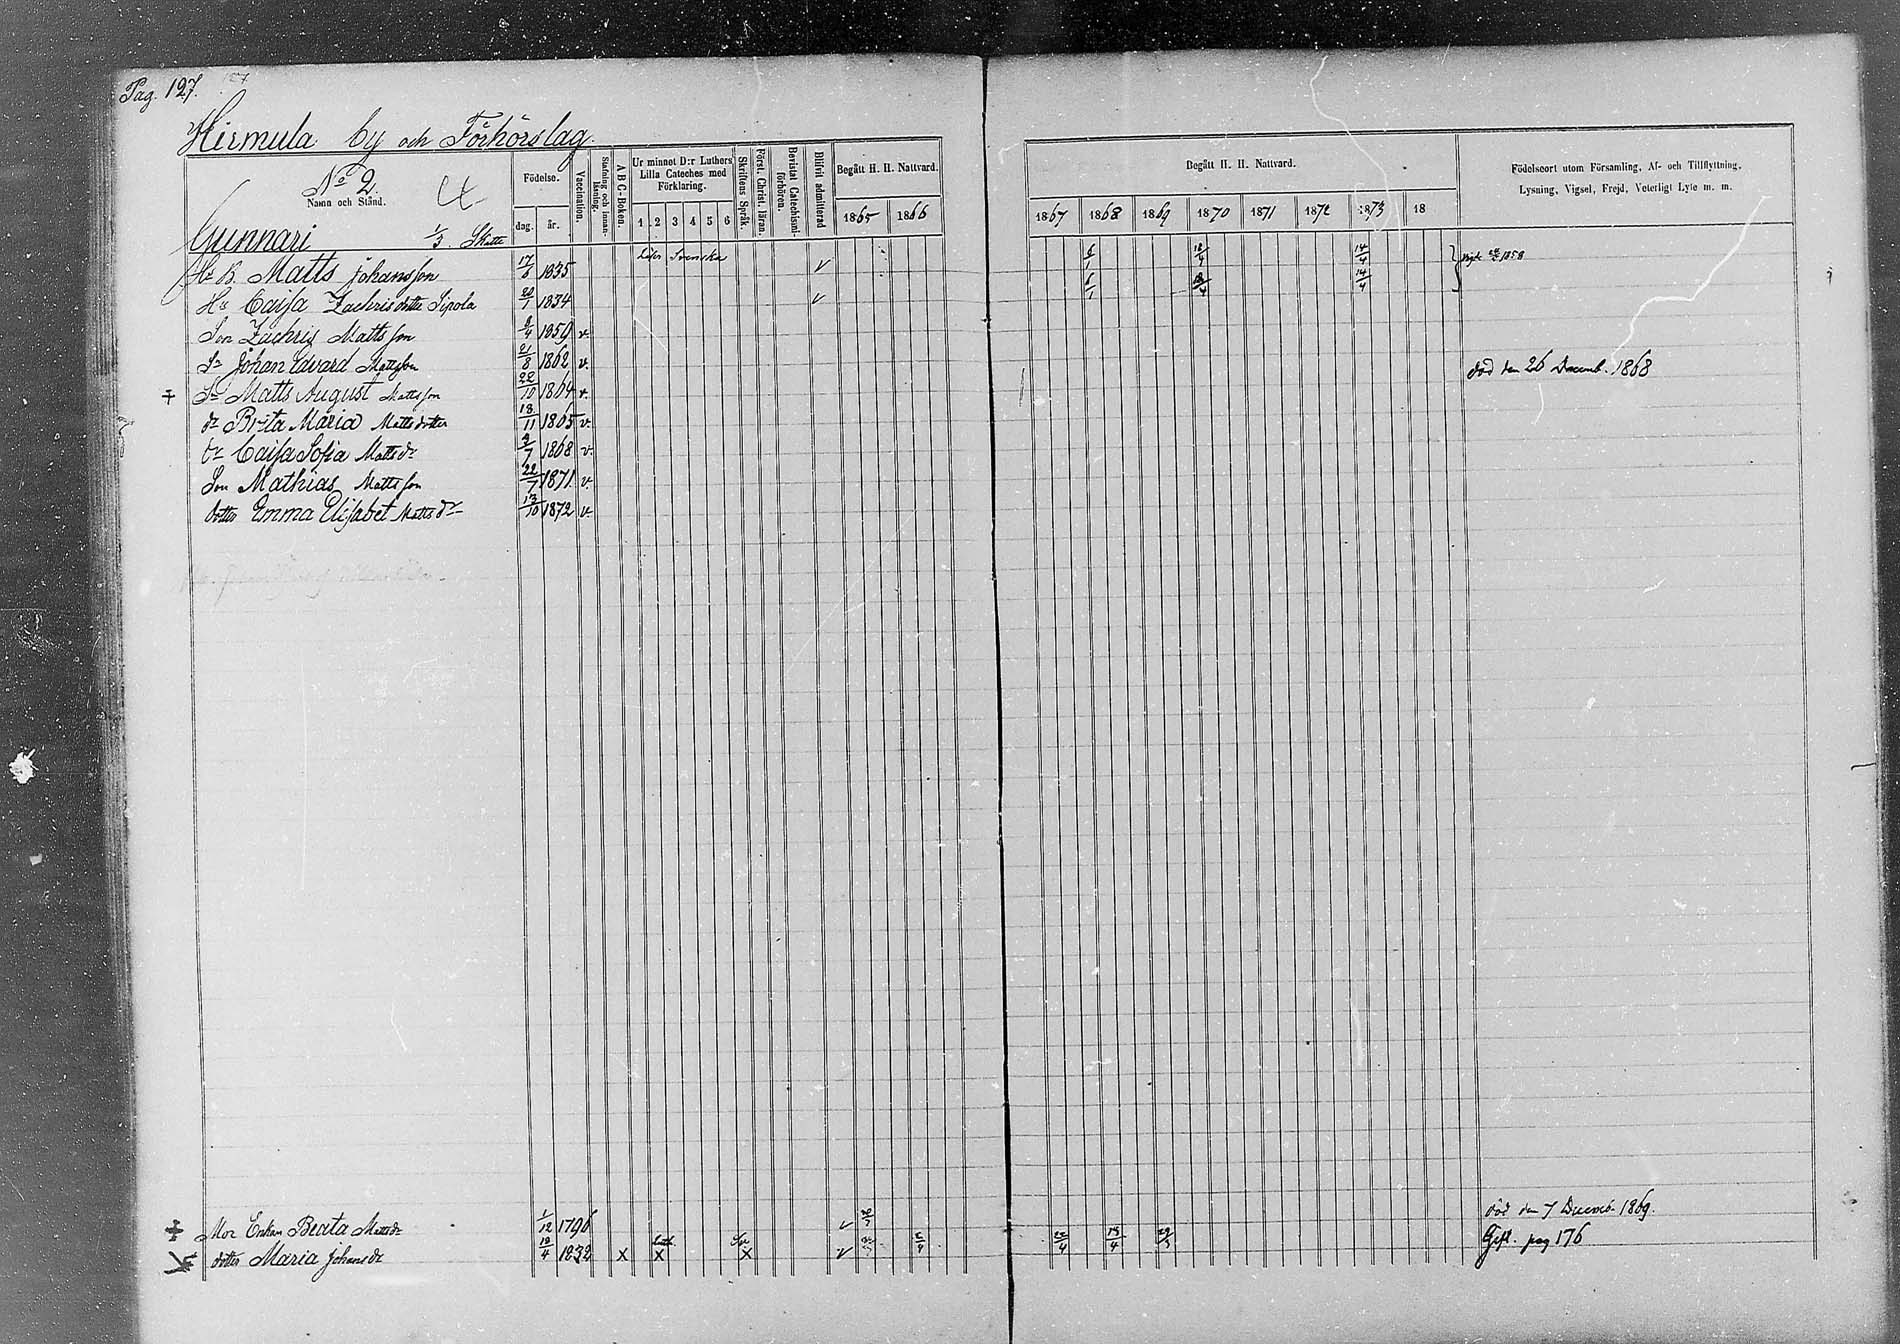 Pag. 127.
127
Hirmula by och Förhörslag.
No 2.
Namn och Stånd.
Födelse.
dag. år.
Vaccination.
Stafning och innanläsning.
ABC-Boken.
Ur minnet D:r Luthers Lilla Cateches med Förklaring.
1 2 3 4 5 6
Skriftens Språk.
Först. Christ. läran.
Bevistat Catechismiförhören.
Blifvit admitterad
Begått H. H. Nattvard.
1865 1866
Begått H. H. Nattvard.
1867 1868 1869 1870 1871 1872 1873 18
Födelseort utom Församling, Af- och Tillflyttning,
Lysning, Vigsel, Frejd, Veterligt Lyte m. m.
Gunnari 1/3 Skatte
Hr B. Matts Johansson 17/6 1835 Läser Svenska v 6/1 18/4 14/4 1858
Hu Caisa Zachrisdotter Sipola 20/1 1834 v 6/1 18/4 14/4
Son Zachris Mattsson 9/4 1859 v.
Sn Johan Edvard Mattsson 21/8 1862 v.
Sn Matts August Mattsson 22/10 1864 v. död den 26 Decemb. 1868
dr Brita Maria Mattsdotter 18/11 1865 v.
dr Caisa Sofia Mattsdr 2/7 1868 v.
Son Mathias Mattsson 22/7 1871 v.
dotter Emma Elisabet Mattsdr 13/10 1872 v.
Mor Enkan Beata Mattsdr 1/12 1796 v död den 7 Decemb. 1869.
dotter Maria Johansdr 18/4 1832 x x x v 15/4 Gift. pag 176